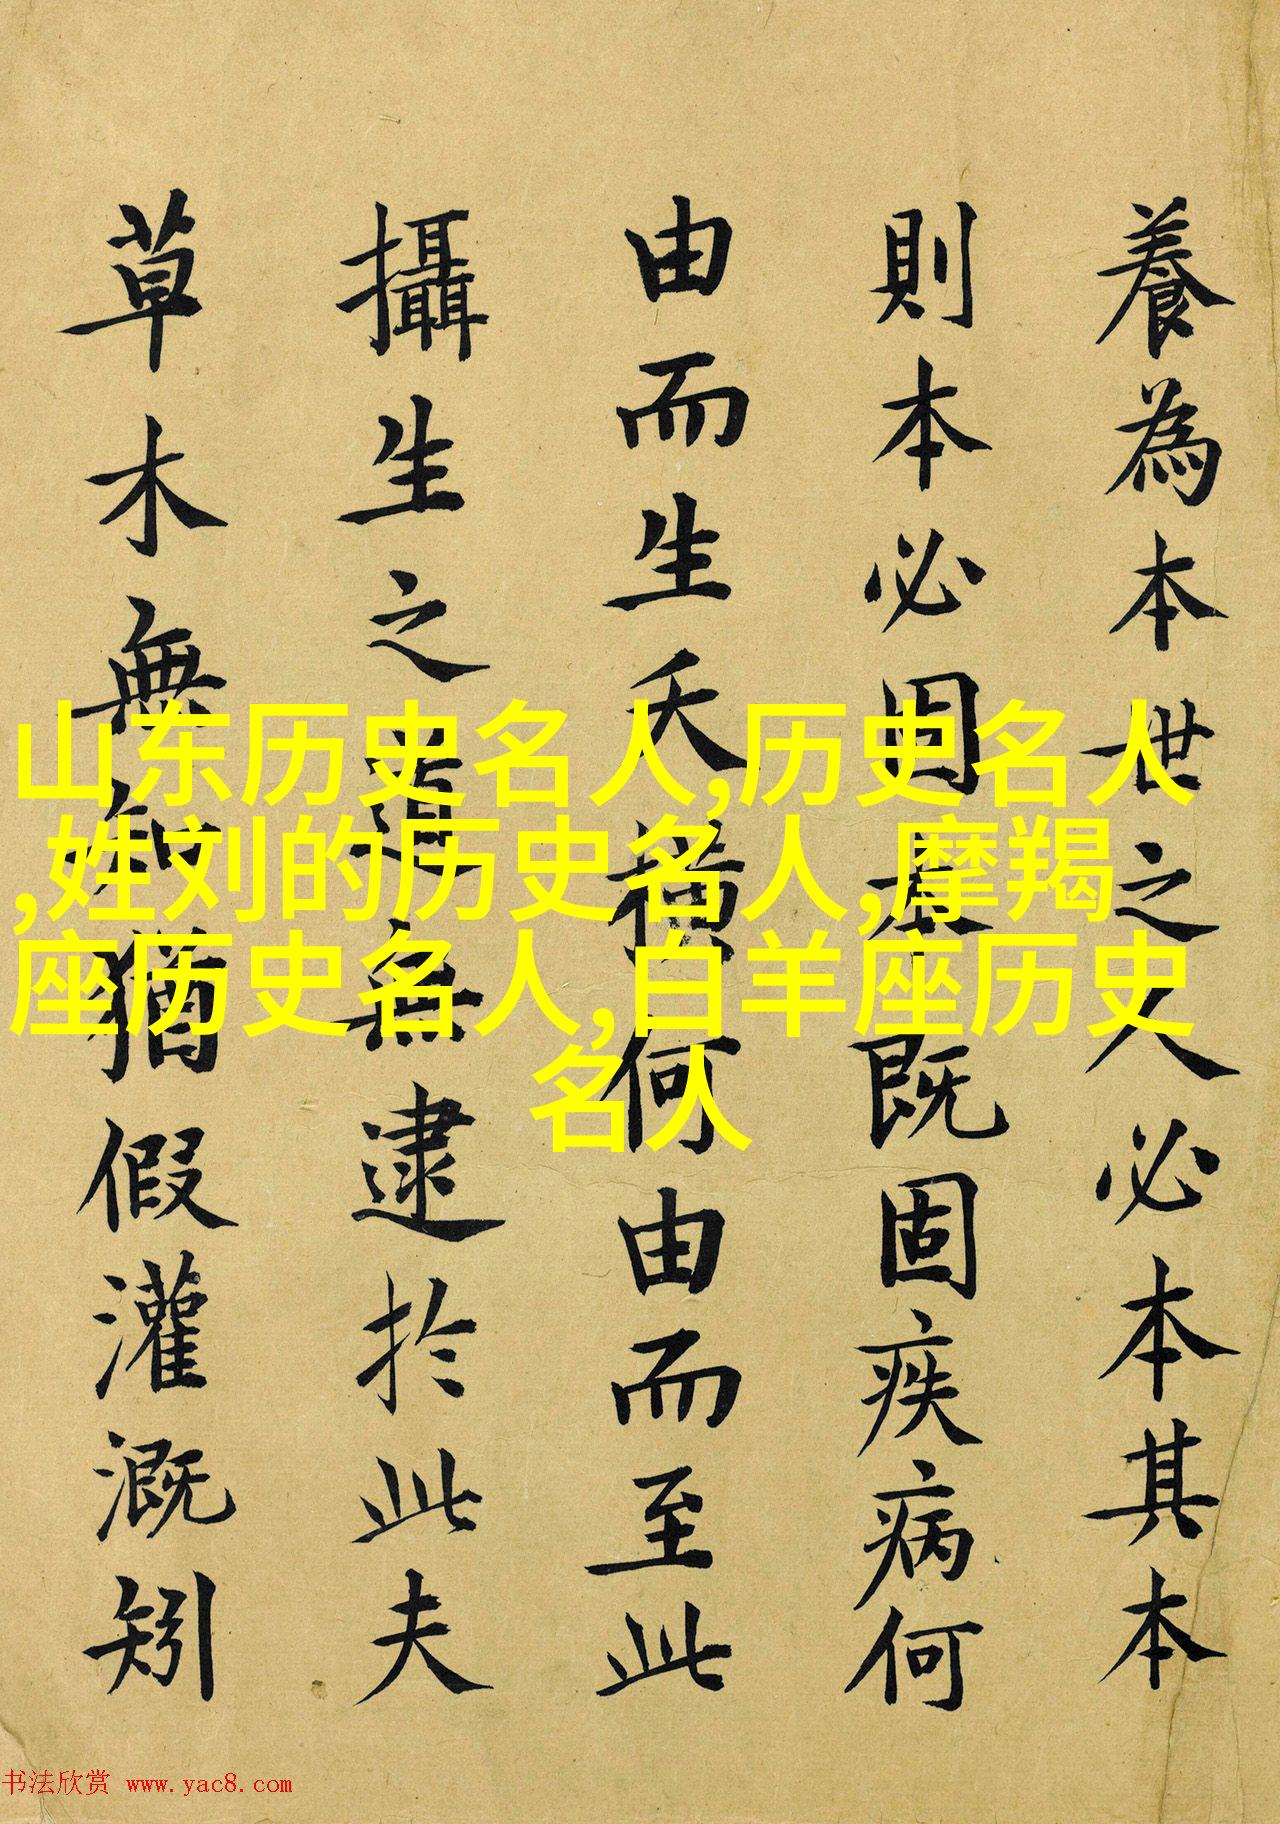 養為本世之人必本其本
則本必固本既固疾病何
由而生夭橫何由而至此
攝生之道無逮於此夫
草木無知猶假灌溉矧
山东历史名人,历史名人
,姓刘的历史名人,摩羯
座历史名人,白羊座历史
名人
书法欣赏 www.yac8.com